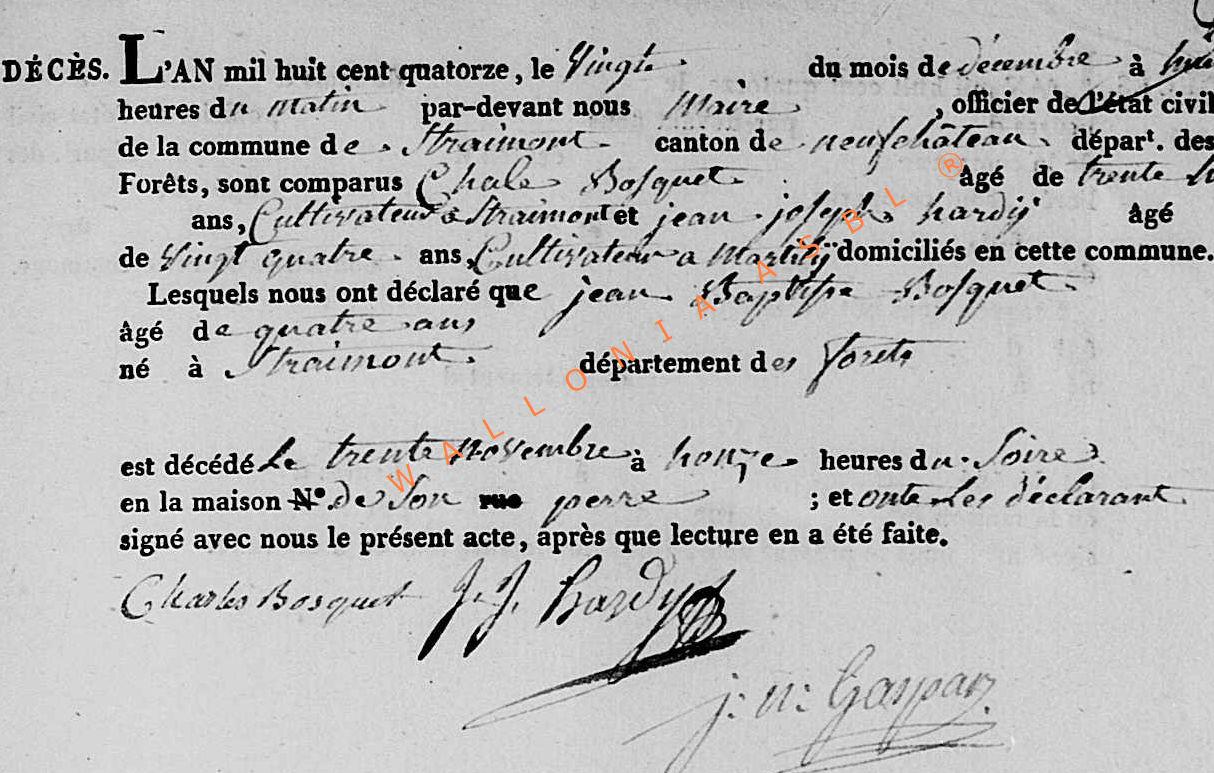 DÉCÈS. L'AN mil huit cent quatorze, le Vingt du mois de décembre à
heures du matin par-devant nous Maire , officier de l'état civil
de la commune de Straimont canton de neufchâteau départ. des
Forêts, sont comparus Chale Bosquet âgé de trente
ans, Cultivateur a Straimont et jean joseph hardÿ âgé
de Vingt quatre ans, Cultivateur a Martilly domiciliés en cette commune.
Lesquels nous ont déclaré que jean Baptiste Bosquet
âgé de quatre ans
né à Straimont département des forets
est décédé Le trente novembre à honze heures du Soire
en la maison N° de Son rue perre ; et onte Les déclarant
signé avec nous le présent acte, après que lecture en a été faite.
Charles Bosquet J. J. hardy
j: n: Gaspar
WALLONIA ASBL ®